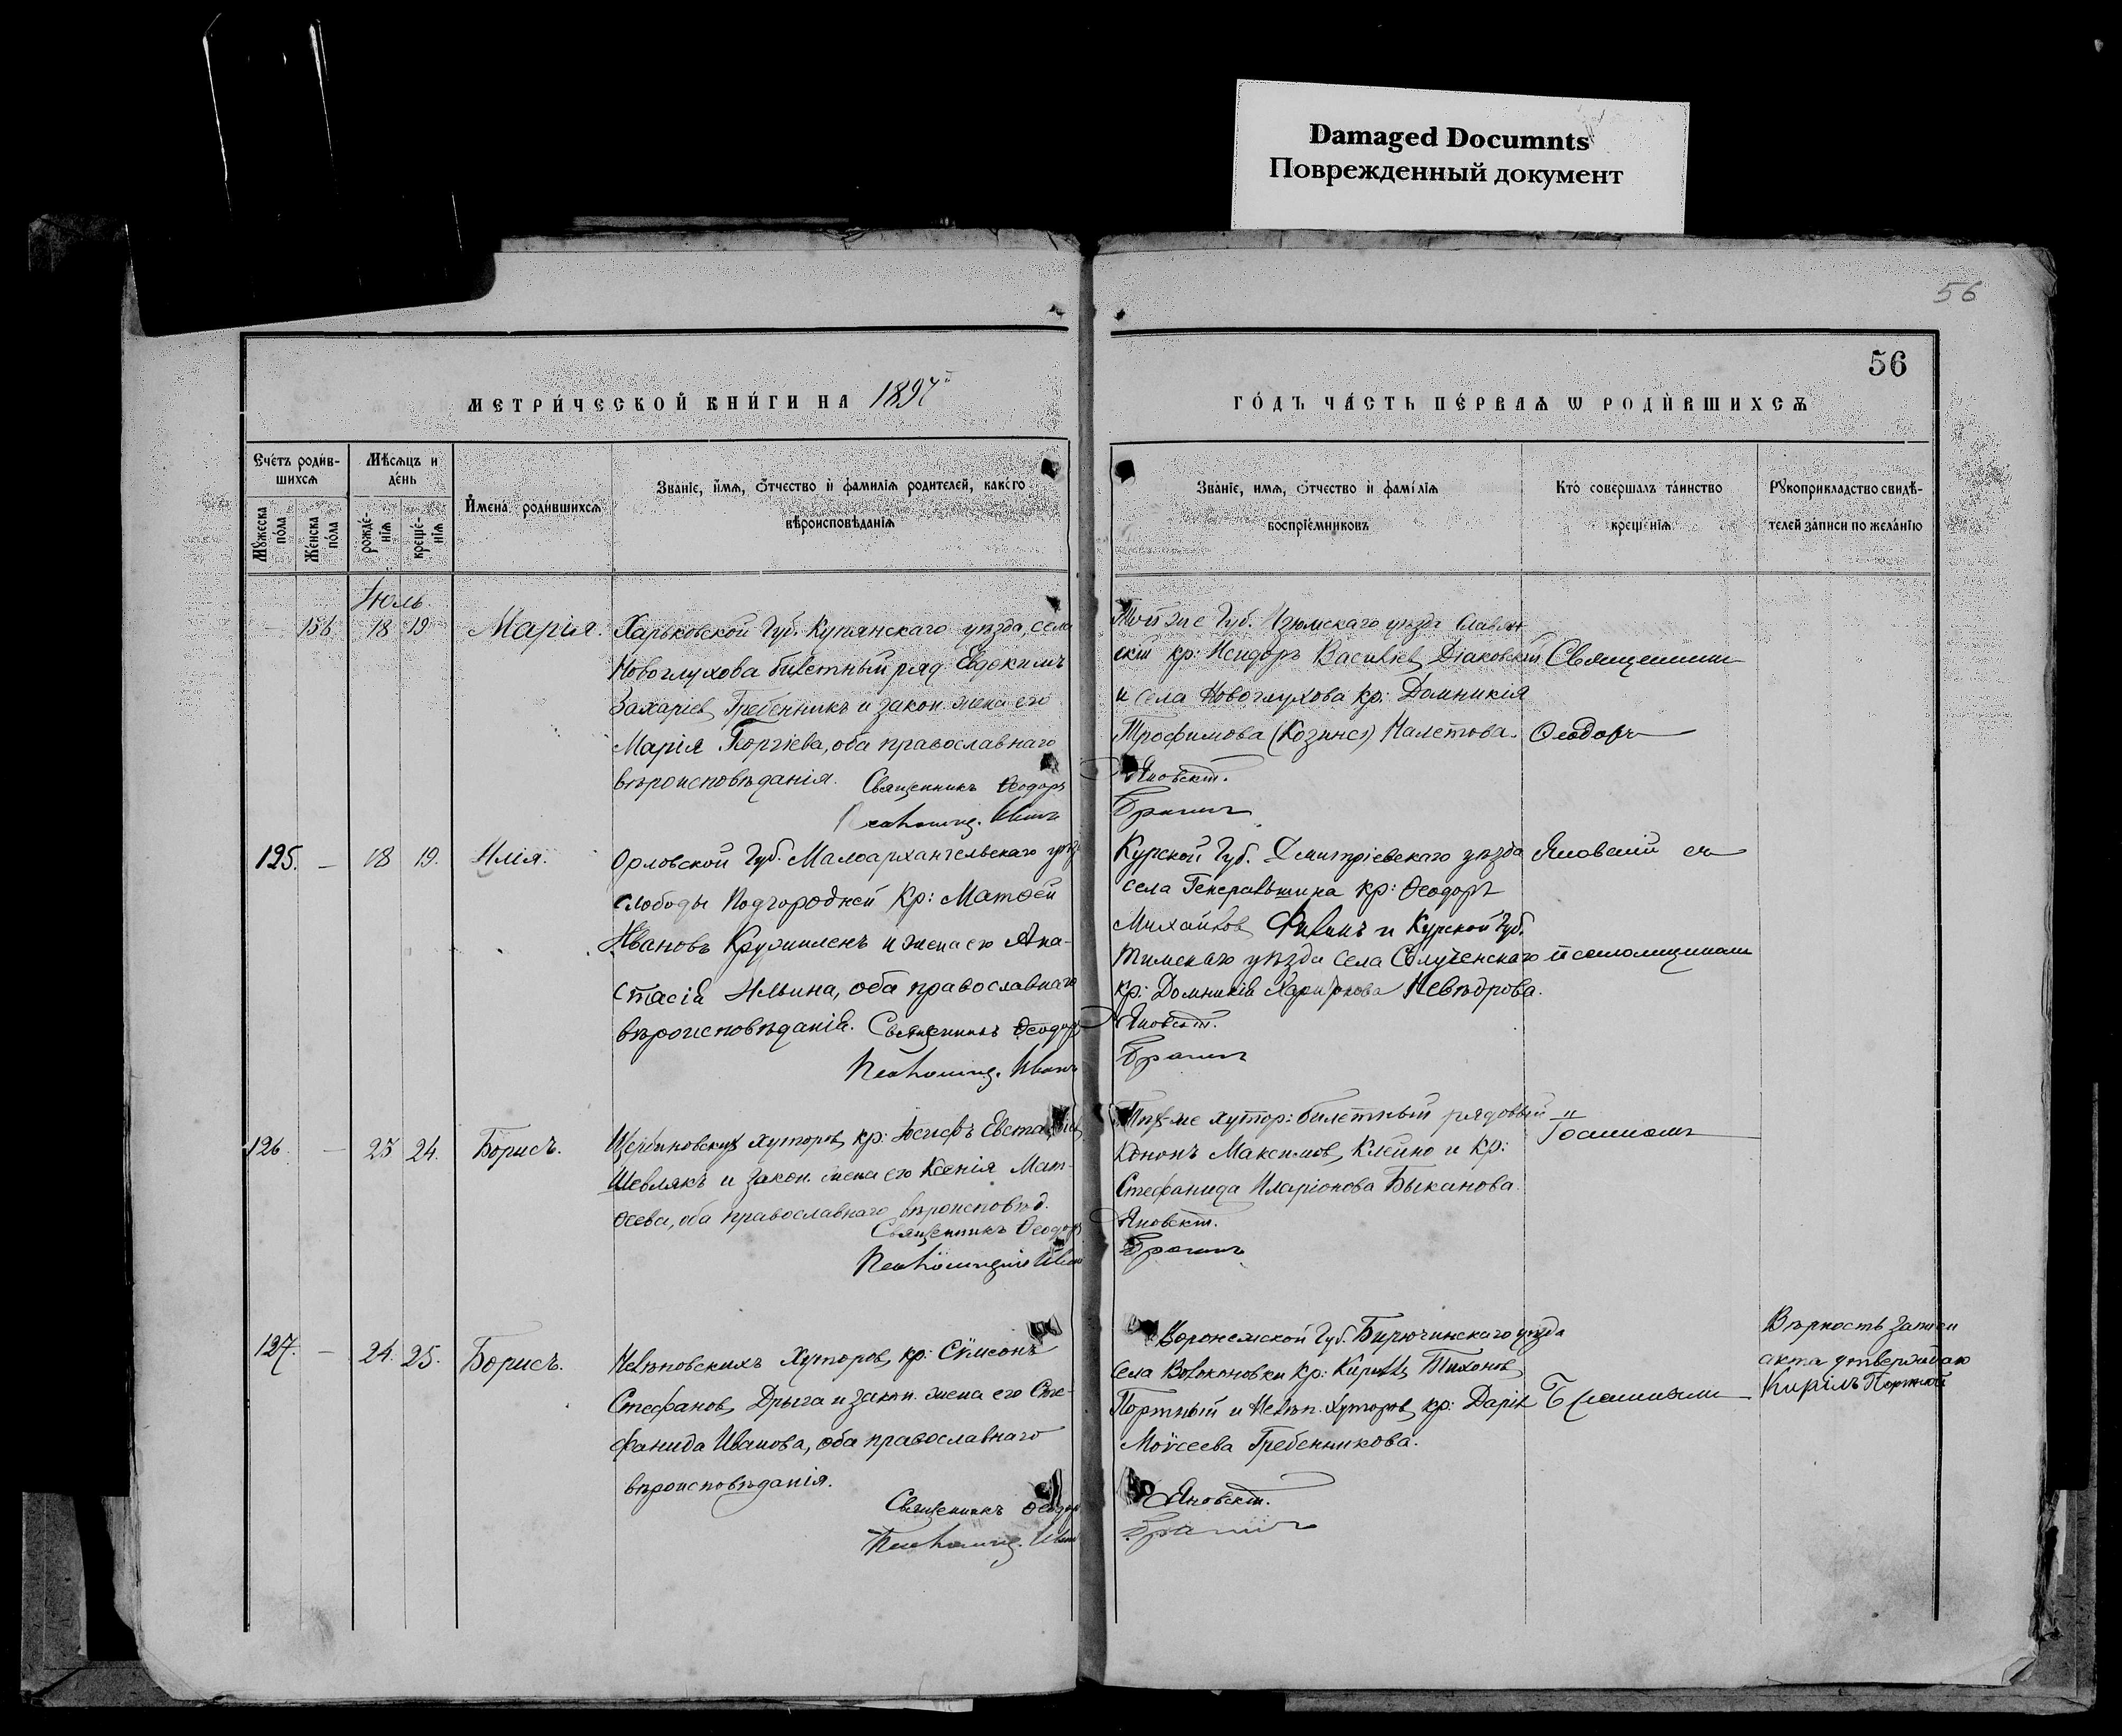 Damaged Documnts
Поврежденный документ
56
56
МЕТРИ́ЧЕСКОЙ КНИ́ГИ НА 1897
ГО́ДЪ ЧА́СТЬ ПЕ́РВАѦ Ѡ РОДИ́ВШИХСѦ
Счетъ роди́в-
шихсѧ
Мѣсѧцъ и
де́нь
Мꙋжеска
по́ла
Же́нска
по́ла
рожде́-
нїѧ
креще́-
нїѧ
И́мена̀ роди́вшихсѧ
Зва́нїе, и́мѧ, ѻ́тчество и фамилїѧ родителей, како́го
вѣроисповѣ́данїѧ
Зва́нїе, имѧ, ѻ́тчество и фамі́лїѧ
воспрїе́мниковъ
Кто̀ соверша́лъ та́инство
креще́нїѧ
Рꙋкоприкладство свидѣ́-
телей за́писи по жела́нїю
Июль
156 18 19 Марія. Харьковской Губ. Купянскаго уѣзда, села
Новоглухова билетный ряд. Евдокимъ
Захаріев Гребенникъ и закон. жена его
Марія Георгіева, оба православнаго
вѣроисповѣданія. Священникъ Ѳеодоръ
Иванъ
Той же Губ. Изюмскаго уѣзда Славян
скій кр: Исидоръ Васильев Діаковскій
и села Новоглухова кр: Домникія
Трофимова (Козинс) Налетова.
Яновскій.
Брагинъ
Священники
Ѳеодоръ
125. — 18 19. Илія. Орловской Губ. Малоархангельскаго уѣзд
слободы Подгородней Кр: Матѳей
Ивановъ и жена его Ана-
стасія Ильина, оба православнаго
вѣроисповѣданія. Священникъ Ѳеодоръ
Иванъ
Курской Губ. Дмитріевскаго уѣзда
села Генеральшина кр: Ѳеодоръ
Михайлов Филинъ и Курской Губ.
Тимскаго уѣзда села
кр: Домникія Харитонова Невѣдрова.
Яновскій.
Брагинъ
Яновскій съ
псаломщикомъ
126 — 23 24. Борисъ. Щербиновских хуторов, кр: Іосифъ Евстаѳіев
Шевлякъ и закон. жена его Ксенія Мат-
ѳеева, оба православнаго вѣроисповѣд.
Священникъ Ѳеодор
Иван
Тѣх-же хутор: билетный рядовый
Кононъ Максимов, Клейно и Кр:
Стефанида Иларіонова Быканова.
Яновскій.
Брагинъ
Іоанномъ
127. — 24. 25. Борисъ. Нелѣповскихъ Хуторов, кр: Сѵмеонъ
Стефанов, Дрыга и закон. жена его Сте-
фанида Иванова, оба православнаго
вѣроисповѣданія.
Священникъ Ѳеодор
Иван
Воронежской Губ. Бирючинскаго уѣзда
села Волоконовки Кр: Кирилл Тихонов,
Портный и Нелѣп. Хуторов, кр: Дарія
Моѵсеева Гребенникова.
Яновскій.
Брагинъ
Вѣрность записи
акта утверждаю
Кирілъ Портной